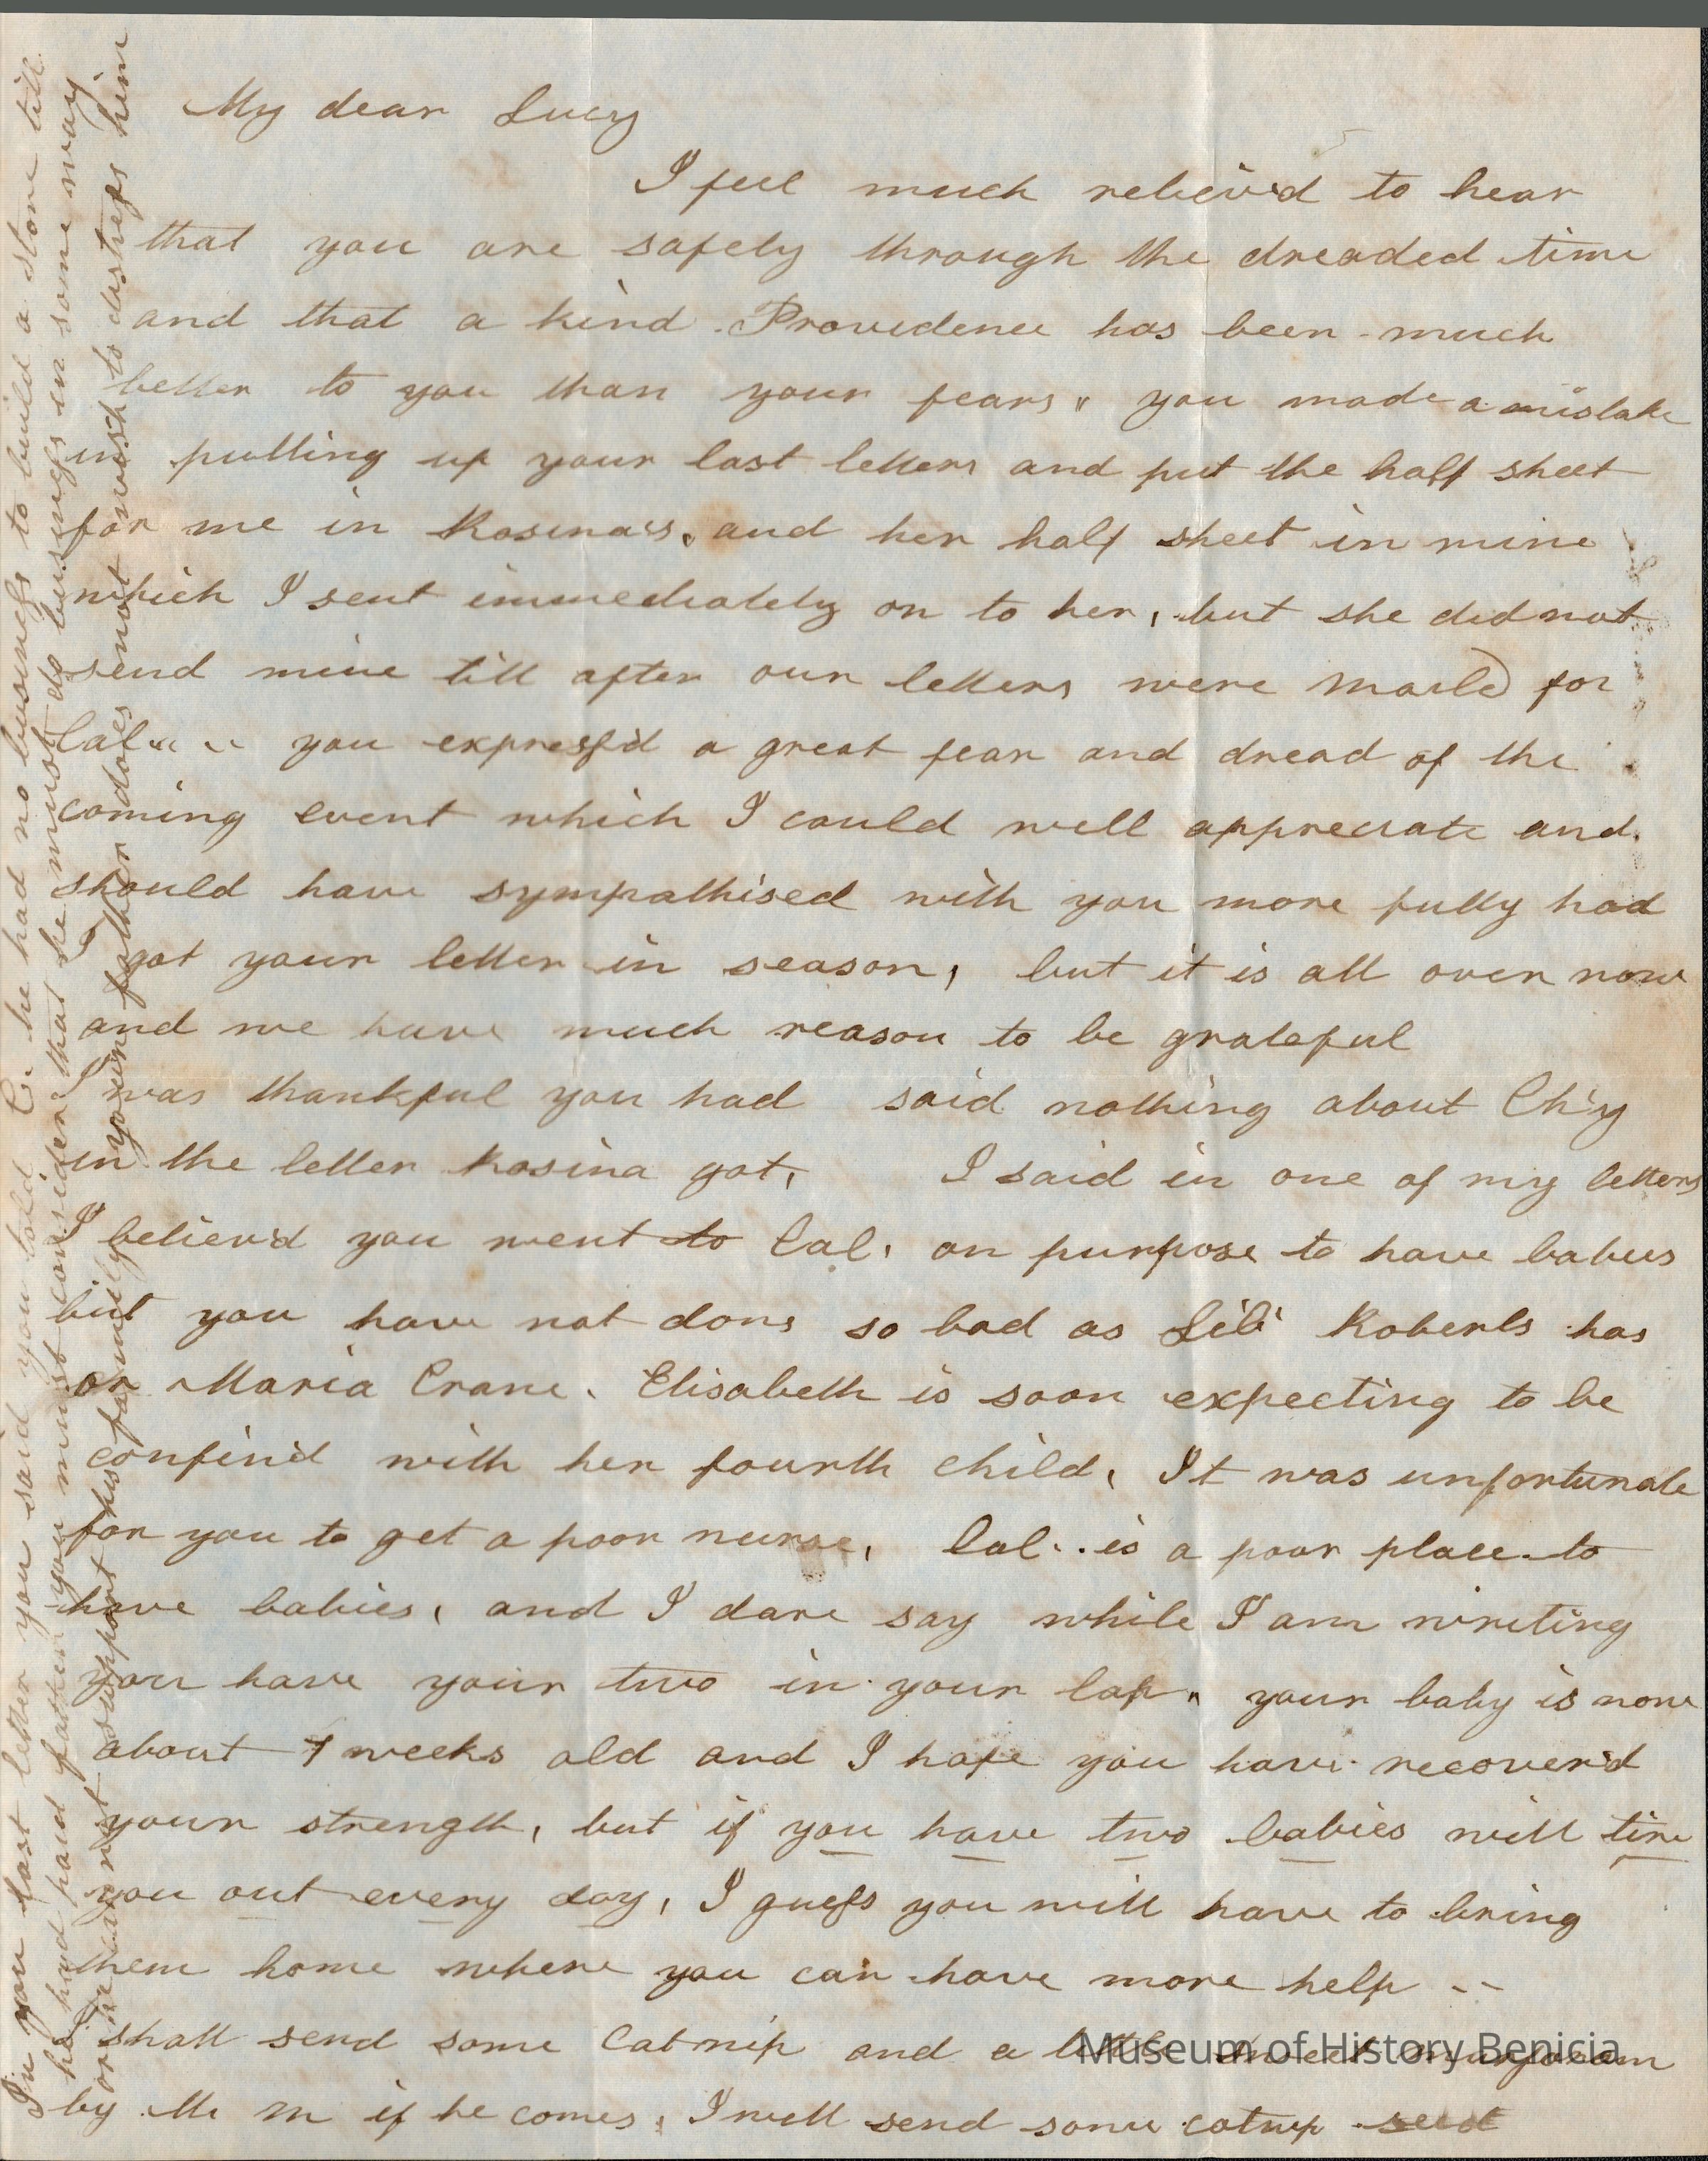 My dear Lucy
I feel much reliev'd to hear
that you are safely through the dreaded time
and that a kind Providence has been much
better to you than your fears" you made a mistake
in putting up your last letters and put the half sheet
for me in Rosina's, and her half sheet in mine
which I sent immediately on to her, but she did not
send mine till after our letters were maild for
Cal" " you express'd a great fear and dread of the
coming event which I could well appreciate and
should have sympathised with you more fully had
I got your letter in season, but it is all over now
and we have much reason to be grateful
I was thankful you had said nothing about Ch'y
in the letter Rosina got, I said in one of my letters
I believ'd you went to Cal. on purpose to have babies
but you have not done so bad as Lib' Roberts has
or Maria Crane. Elisabeth is soon expecting to be
confin'd with her fourth child, It was unfortunate
for you to get a poor nurse, Cal.. is a poor place to
have babies, and I dare say while I am writing
you have your two in your lap" your baby is now
about 7 weeks old and I hope you have recover'd
your strength, but if you have two babies will tire
you out every day, I guess you will have to bring
them home where you can have more help - -
I shall send some Catnip and a little
by Mr M if he comes, I will send some catnip seed
In your last letter you said you told C. he had no business to build a store till
he had paid father you must consider that he must do business in some way
or he cannot support his family your father does not wish to distress him
Museum of History Benicia